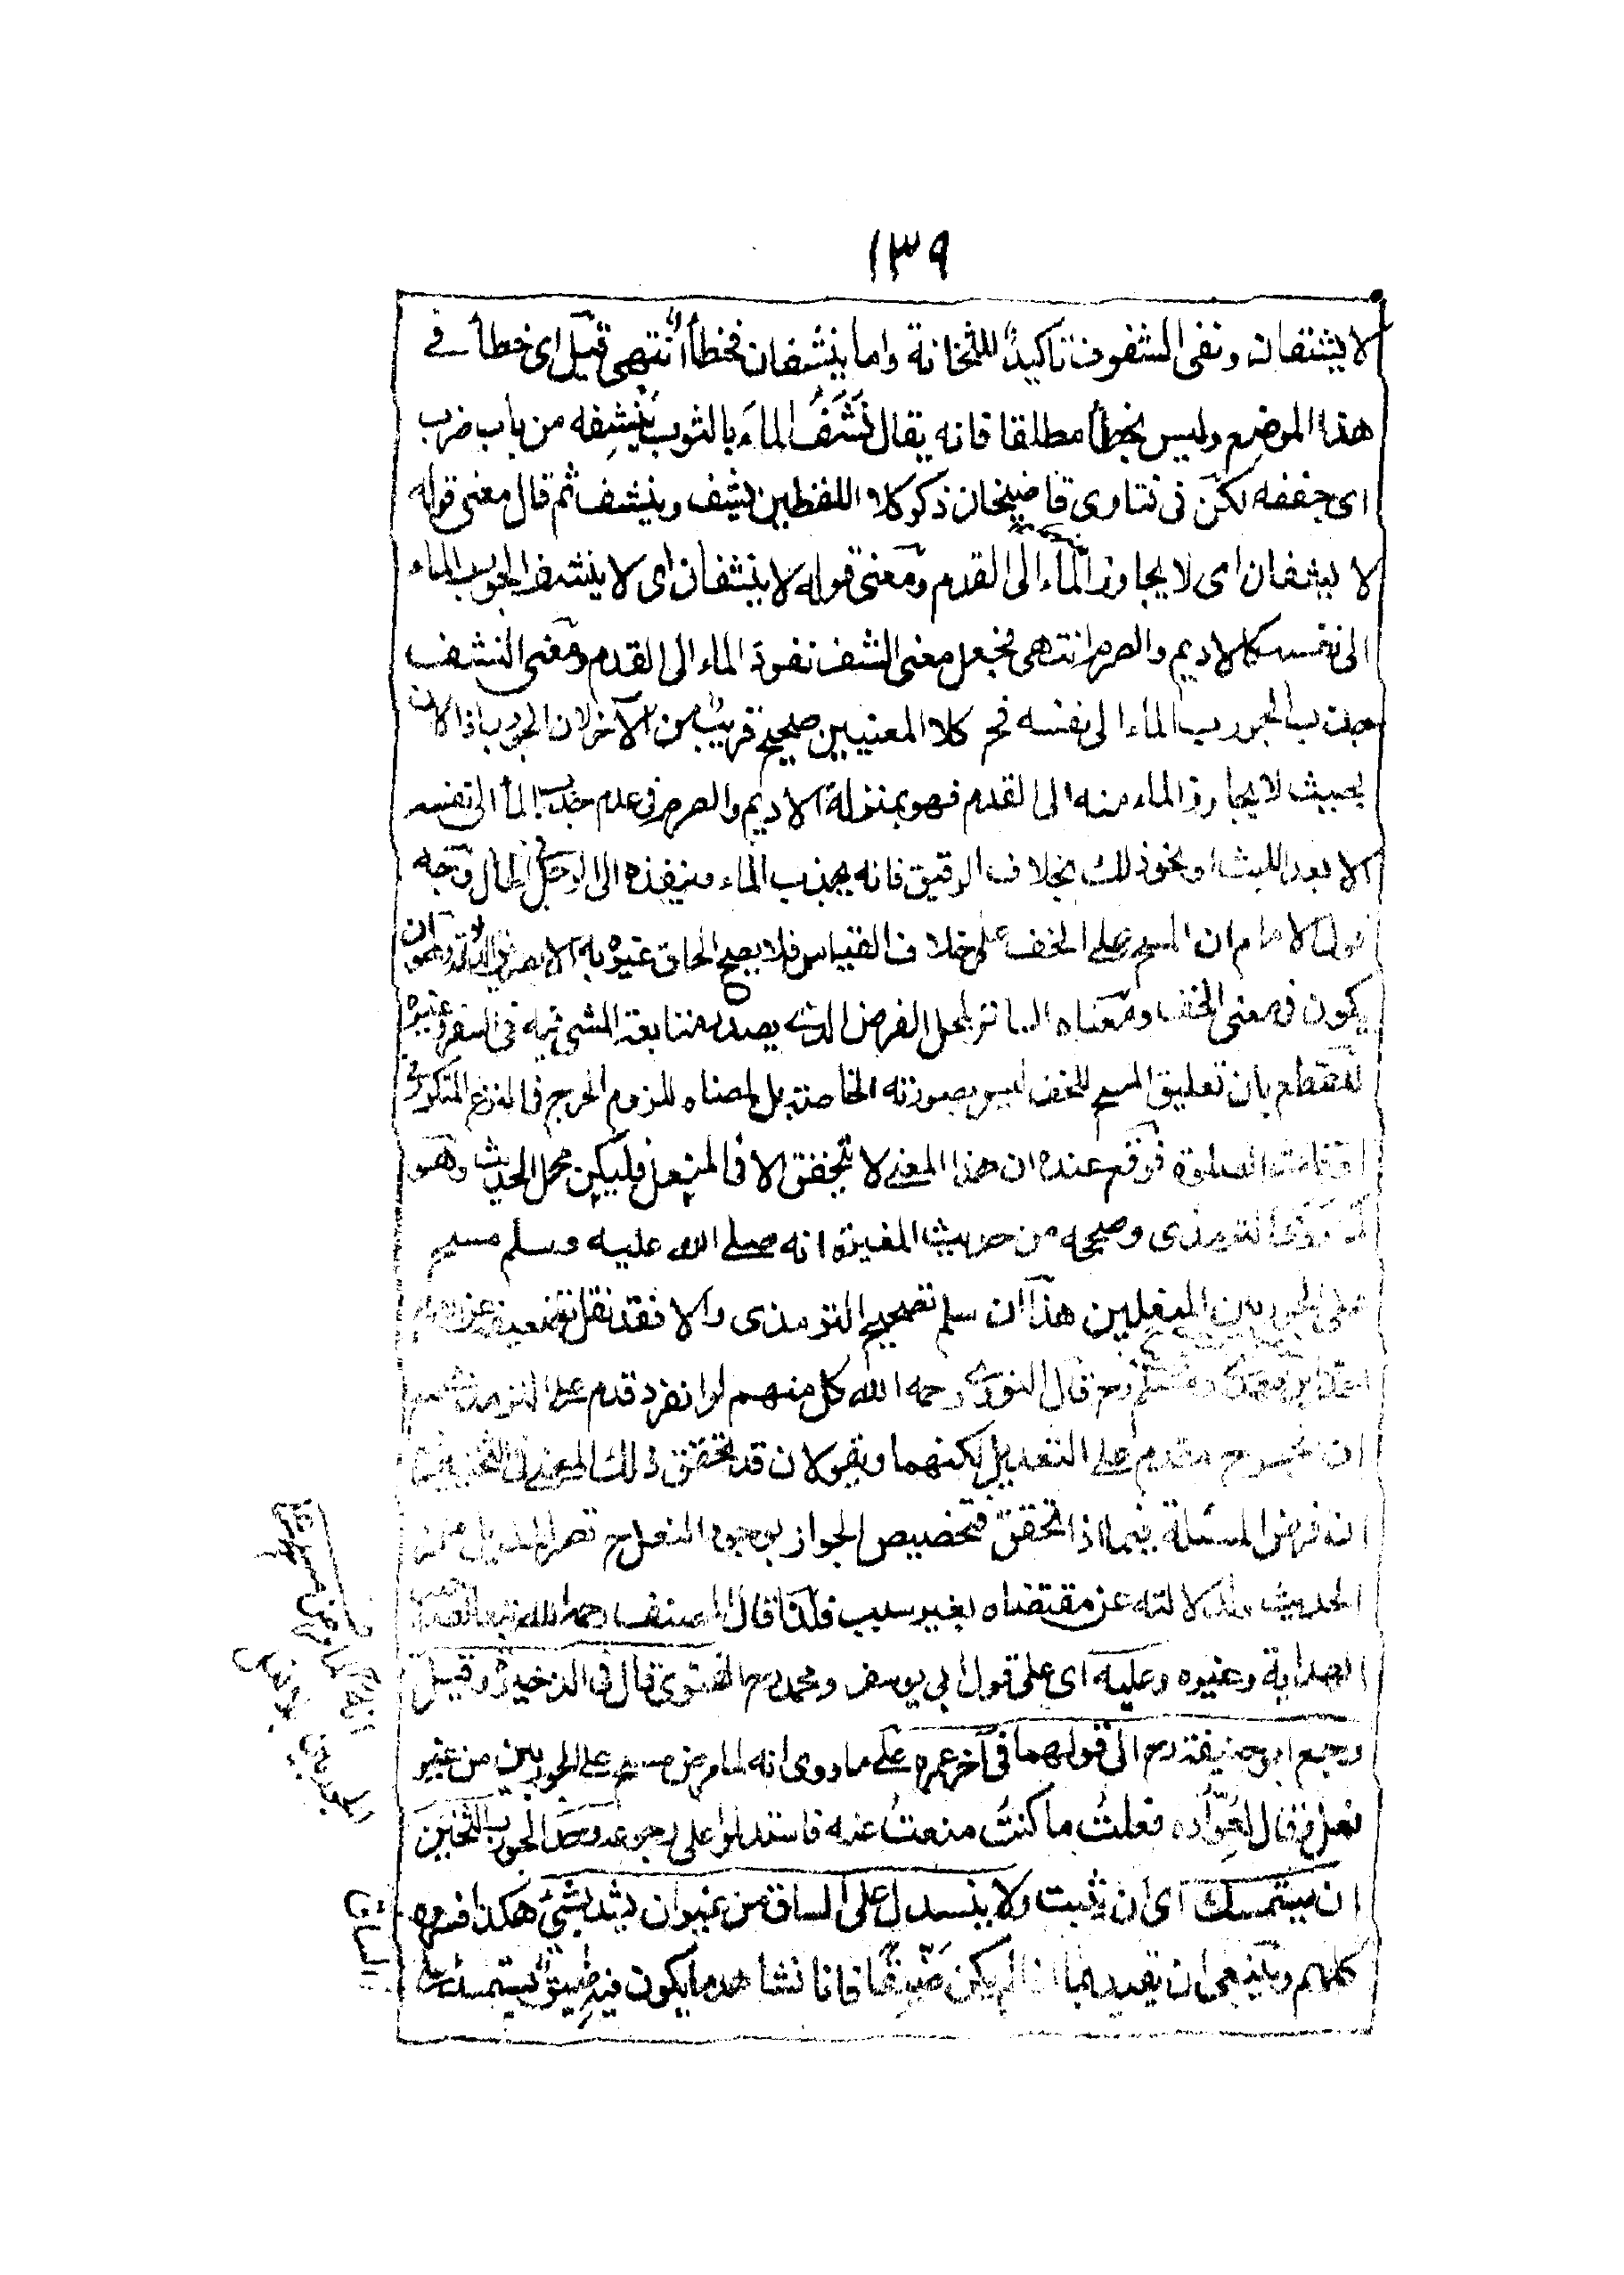 ١٣٩
لا يشفان ونفى الشفوف تاكيدٌ للثخانة واما ينشفان فخطأ انتهى قيل اى خطأ فى
هذا الموضع وليس بخطأ مطلقا فانه يقال نَشَفَ الماءَ بالثوب يَنْشِفه من باب ضرب
اى جففه لكن فى فتاوى قاضيخان ذكر كلا اللفظين يشف وينشف ثم قال معنى قوله
لا يشفان اى لا يجاوز الماء الى القدم ومعنى قوله لا ينشفان اى لا ينشف الجورب الماء
الى نفسه كالاديم والصرم انتهى فجعل معنى الشف نفوذ الماء الى القدم ومعنى النشف
جذب الجورب الماء الى نفسه فح كلا المعنيين صحيح قريب من الآخر لان الجورب اذا كان
بحيث لا يجاوز الماء منه الى القدم فهو بمنزلة الاديم والصرم فى عدم جذب الماء الى نفسه
الا بعد اللبث او نحو ذلك بخلاف الرقيق فانه يجذب الماء وينفذه الى الرجل فى الحال وجه
قول الامام ان المسح على الخف على خلاف القياس فلا يصح الحاق غيره به الا بطريق الدلالة وهو ان
يكون فى معنى الخف ومعناه الساتر لمحل الفرض الذى بصدد متابعة المشى فيه فى السفر وغيره
للقطع بان تعليق المسح بالخف ليس بصورته الخاصة بل لمعناه للزوم الحرج فى النزع المتكرر فى
اوقات الصلوة فوقع عنده ان هذا المعنى لا يتحقق الا فى المنعل فليكن محمل الحديث وهو
ما روى الترمذى وصححه من حديث المغيرة انه صلى الله عليه وسلم مسح
على الجوربين المنعلين هذا ان سلم تصحيح الترمذى والا فقد نقل تضعيفه عن
ابن مهدى ومسلم قال النووى رحمه الله كل منهم لو انفرد قدم على الترمذى مع
ان الجرح مقدم على التعديل لكنهما يقولان قد تحقق ذلك المعنى فى الثخين
انه فرض المسئلة فيما اذا تحقق فتخصيص الجواز بوجود النعل ح قصر للدليل
الحديث والدلالته عن مقتضاه بغير سبب فلذا قال المصنف رحمه الله تبعا لصاحب
الهداية وغيره وعليه اى على قول ابى يوسف ومحمد رح الفتوى قال فى الذخيرة وقيل
رجع ابو حنيفة رح الى قولهما فى آخر عمره على ما روى انه لما مرض مسح على الجوربين من غير
نعل وقال لِعُوّاده فعلتُ ما كنتُ منعتُ عنه فاستدلوا على رجوعه وحد الجورب الثخين
ان يستمسك اى ان يثبت ولا ينسدل على الساق من غير ان يشد بشئ هكذا فسره
كلهم وينبغى ان يقيد بما اذا لم يكن ضَيِّقًا فانا نشاهد ما يكون فيه ضيق يستمسك على